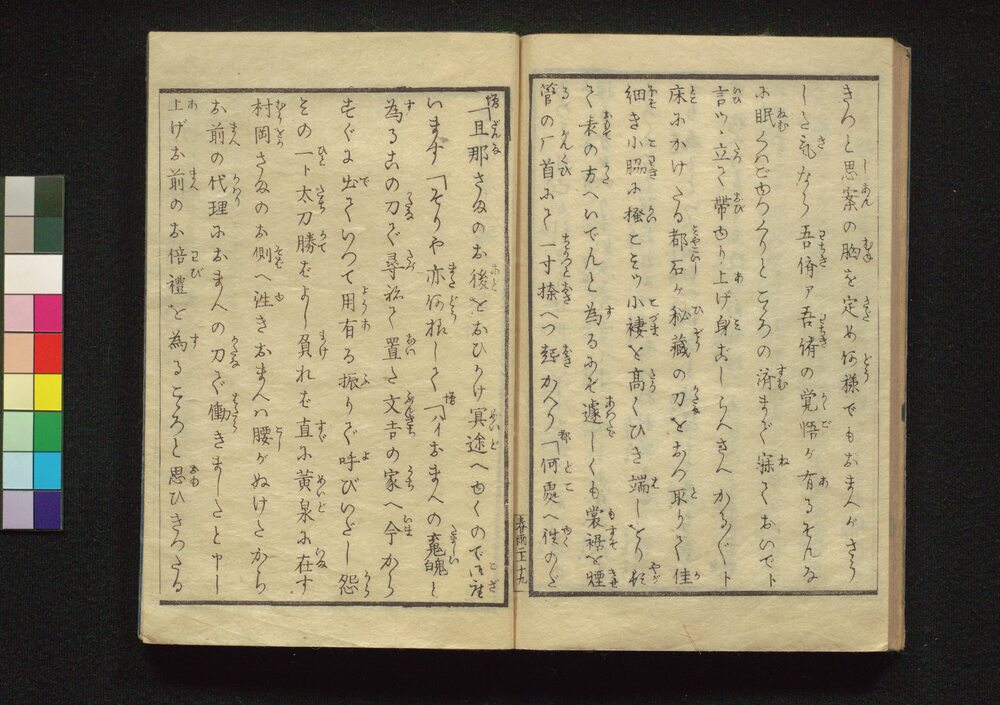 きつと思案の胸を定め何様でもおまへがさう
した氣なら吾儕ァ吾儕の覚悟が有るそんな
に眠くバゆつくりとこゝろの済まで寐ておいでト
言ツヽ立て帯ゆり上げ身ごしらへさへかろ〴〵ト
床にかけたる都石が秘藏の刀をおつ取りて佳
細き小脇に掻こミツヽ小褄を高くひき端しより
て表の方へいでんと為るにぞ遽しくも裳裾を煙
管の厂首にて一寸捺へつ起かへり「何處へ往のだ
増「旦那さまのお後をおひかけ冥途へゆくので御座
います「そりや亦何故して「ハイおまへの魂魄と
為るこの刀で尋ねて置た文吉の家へ今から
すぐに出ていつて用有る振りで呼びいだし怨
その一ト太刀勝ばよし負れば直に黄泉に在す
村岡さまのお側へ往きおまへハ腰がぬけたから
お前の代理におまへの刀で働きましたと申し
上げお前のお侘禮を為るこゝろと思ひきつたる
春雨二上 十九